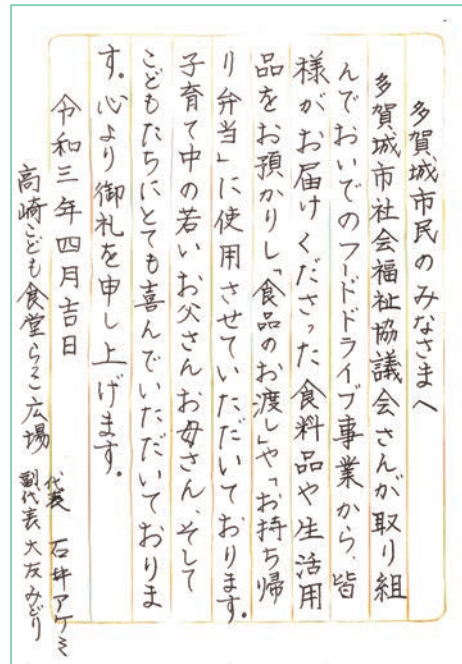 多賀城市民のみなさまへ
多賀城市社会福祉協議会さんが取り組
んでおいでのフードドライブ事業から、皆
様がお届けくださった食料品や生活用
品をお預かりし「食品のお渡し」や「お持ち帰
り弁当」に使用させていただいております。
子育て中の若いお父さんお母さん、そして
こどもたちにとても喜んでいただいておりま
す。心より御礼を申し上げます。
令和三年四月吉日
高崎こども食堂らこ広場
代表 石井アケミ
副代表 大友みどり